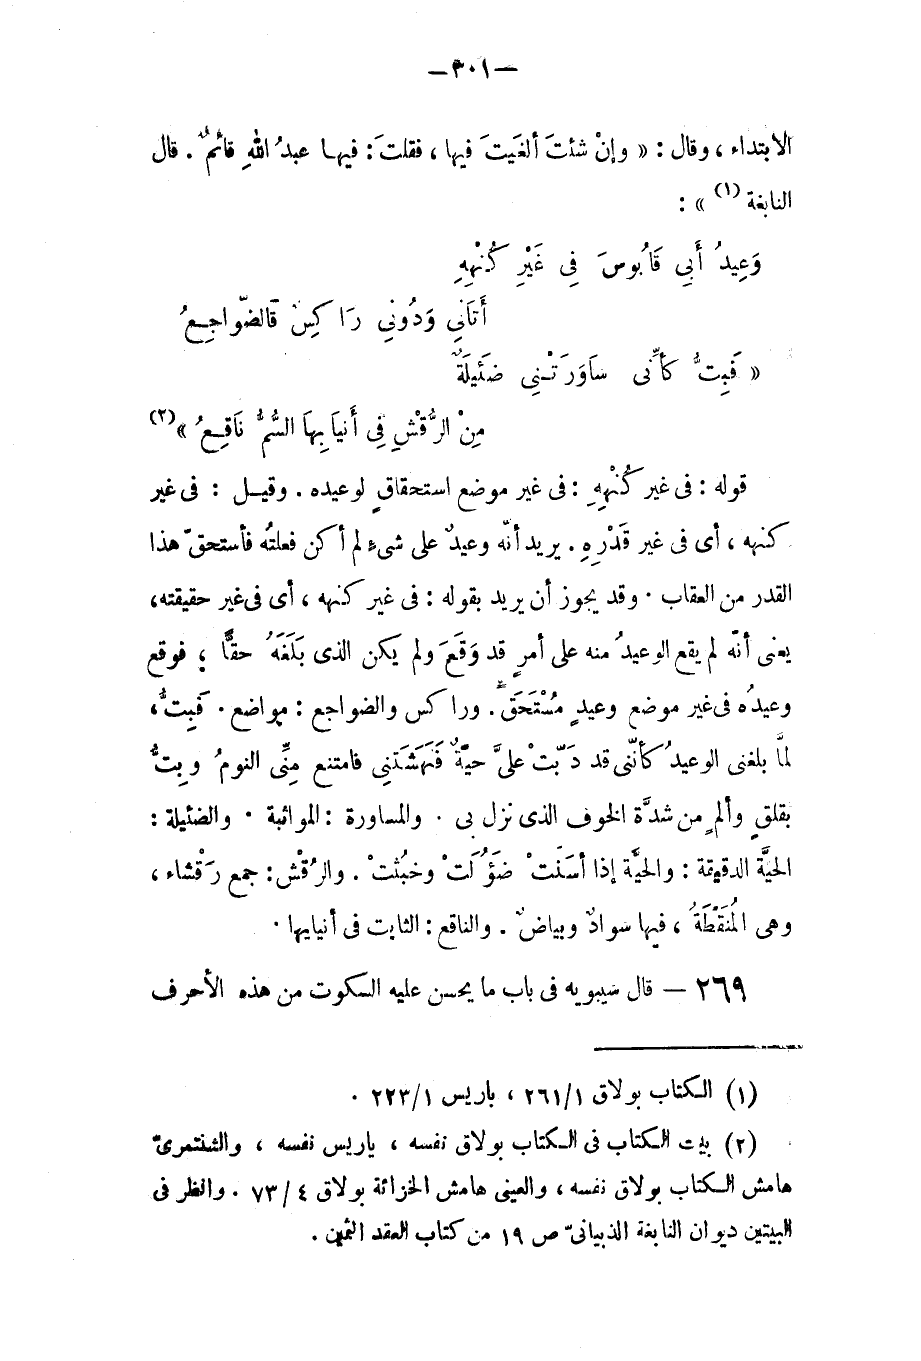 — ٣٠١ —
الابتداء ، وقال : « وإنْ شئتَ ألغَيتَ فيها ، فقلتَ : فيها عبدُ اللهِ قائمٌ . قال
النابغة (١) » :
وَعِيدُ أَبِي قَابُوسَ فِي غَيْرِ كُنْهِهِ
أَتَانِي وَدُونِي رَاكِسٌ فَالضَّوَاجِعُ
« فَبِتُّ كأنِّى سَاوَرَتْنِى ضَئِيلَةٌ
مِنْ الرُّقْشِ فِي أَنيَابِهَا السُّمُّ نَاقِعُ » (٢)
قوله : فى غير كُنْهِهِ : فى غير موضع استحقاقٍ لوعيده . وقيل : فى غير
كنهه ، أى فى غير قَدْرِهِ . يريد أنّه وعيدٌ على شىء لم أكن فعلتُه فأستحقّ هذا
القدر من العقاب . وقد يجوز أن يريد بقوله : فى غير كنهه ، أى فى غير حقيقته ،
يعنى أنّه لم يقع الوعيدُ منه على أمرٍ قد وَقَعَ ولم يكن الذى بَلَغَهُ حقًّا ؛ فوقع
وعيدُه فى غير موضع وعيدٍ مُسْتَحَقٍّ . وراكس والضواجع : مواضع . فَبِتُّ ،
لمَّا بلغنى الوعيدُ كأنّنى قد دَبّتْ علىَّ حيّةٌ فَنَهَشَتنِى فامتنع مِنِّى النومُ وبِتُّ
بقلقٍ وألمٍ من شدَّة الخوف الذى نزل بى . والمساورة : المواثبة . والضئيلة :
الحيَّة الدقيقة : والحيَّة إذا أسَنَتْ ضَؤُلَتْ وخبُثتْ . والرُقْش : جمع رَقْشاء ،
وهى المُنَقَّطَةُ ، فيها سوادٌ وبياضٌ . والناقع : الثابت فى أنيابها .
٢٦٩ — قال سيبويه فى باب ما يحسن عليه السكوت من هذه الأحرف
(١) الكتاب بولاق ٢٦١/١ ، باريس ٢٢٣/١ .
(٢) بيت الكتاب فى الكتاب بولاق نفسه ، باريس نفسه ، والشنتمرىّ
هامش الكتاب بولاق نفسه ، والعينى هامش الخزانة بولاق ٤ / ٧٣ . وانظر فى
البيتين ديوان النابغة الذبيانىّ ص ١٩ من كتاب العقد الثمين .